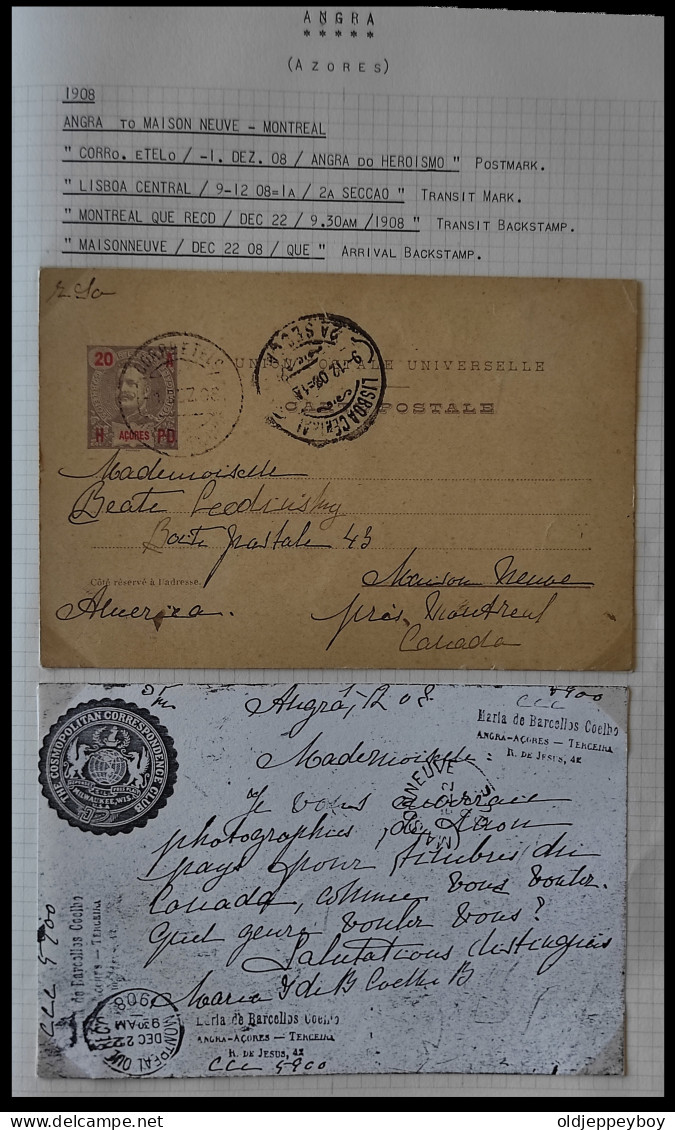 ANGRA
*****
(AZORES)
1908
ANGRA TO MAISON NEUVE - MONTREAL
" CORRO. ETELO / -1. DEZ. 08 / ANGRA DO HEROISMO " POSTMARK.
" LISBOA CENTRAL / 9-12 08=1A / 2A SECCAO " TRANSIT MARK.
" MONTREAL QUE RECD / DEC 22 / 9.30AM /1908 " TRANSIT BACKSTAMP.
" MAISONNEUVE / DEC 22 08 / QUE " ARRIVAL BACKSTAMP.
20 A
H AÇORES PD
LISBOA CENTRAL
9-12 08=1A
UNION POSTALE UNIVERSELLE
CARTE POSTALE
Mademoiselle
Beate
Boite postale 43
Maison Neuve
Côté réservé à l'adresse.
America.
près Montreal
Canada
THE COSMOPOLITAN CORRESPONDENCE CLUB
MILWAUKEE, WIS.
Angra, 1, 12 08
CCC 5900
Maria de Barcellos Coelho
ANGRA-AÇORES — TERCEIRA
R. DE JESUS, 42
Mademoiselle:
MAISONNEUVE
Je vous
photographies, de mon
pays pour timbres du
Canada, comme vous voulez.
Quel genre voulez vous?
Salutations distinguées
Maria I de B Coelho B
CCC 5900
de Barcellos Coelho
AÇORES — TERCEIRA
MONTREAL QUE
DEC 22
9.30AM
1908
Maria de Barcellos Coelho
ANGRA-AÇORES — TERCEIRA
R. DE JESUS, 42
CCC 5900
oldjeppeyboy / Delcampe.net